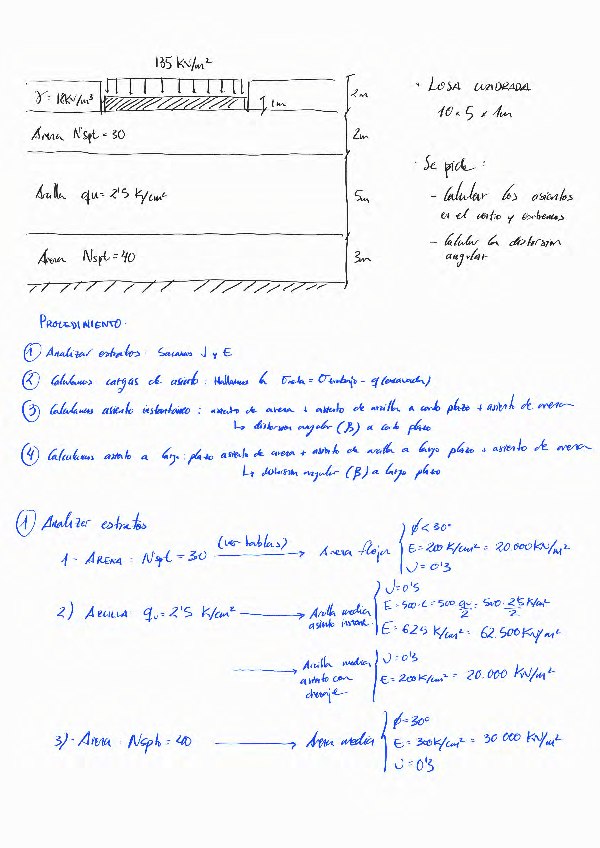 135 KN/m²
γ = 18KN/m³
1m
2m
Arena Nspt = 30
2m
Arcilla qu = 2'5 K/cm²
5m
Arena Nspt = 40
3m
· LOSA CUADRADA
10 x 5 x 1m
· Se pide :
- Calcular los asientos
en el centro y extremos
- Calcular la distorsion
angular
PROCEDIMIENTO.
① Analizar estratos. Sacamos υ y E
② Calculamos cargas de asiento : Hallamos la σneta = σtrabajo - q (excavada)
③ Calculamos asiento instantáneo : asiento de arena + asiento de arcilla a corto plazo + asiento de arena
↳ distorsion angular (β) a corto plazo
④ Calculamos asiento a largo plazo : asiento de arena + asiento de arcilla a largo plazo + asiento de arena
↳ distorsion angular (β) a largo plazo
① Analizar estratos
1 - ARENA : Nspt = 30 (ver tablas) → Arena floja
ϕ < 30°
E = 200 K/cm² = 20 000 KN/m²
υ = 0'3
2) ARCILLA qu = 2'5 K/cm² → Arcilla media
asiento instant.
υ = 0'5
E = 500·C = 500 qu/2 = 500·2'5/2 K/cm²
E = 625 K/cm² = 62.500 KN/m²
→ Arcilla media
asiento con
drenaje
υ = 0'3
E = 200 K/cm² = 20.000 KN/m²
3) - Arena : Nspt = 40 → Arena media
ϕ = 30°
E = 300 K/cm² = 30 000 KN/m²
υ = 0'3